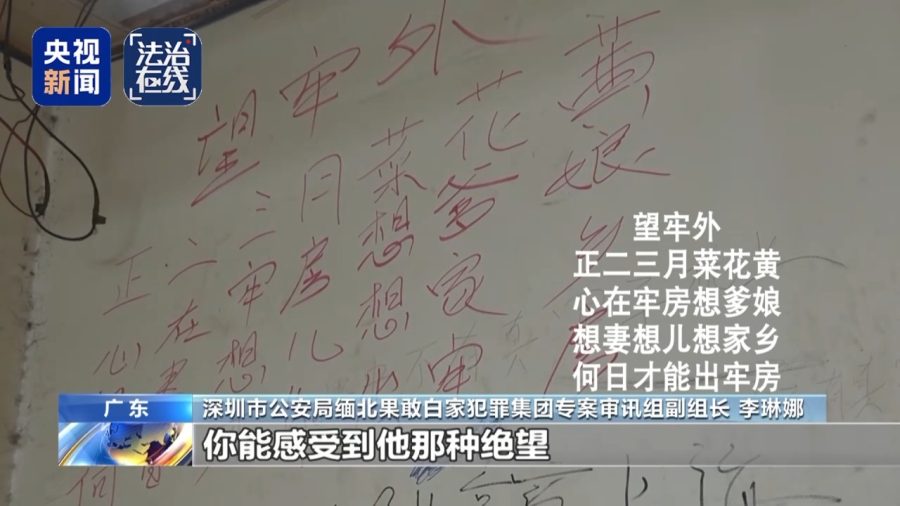 央视新闻
法治在线
望牢外
正二三月菜花黄
心在牢房想爹娘
想儿想家乡
何
望牢外
正二三月菜花黄
心在牢房想爹娘
想妻想儿想家乡
何日才能出牢房
广东
深圳市公安局缅北果敢白家犯罪集团专案审讯组副组长 李琳娜
你能感受到他那种绝望